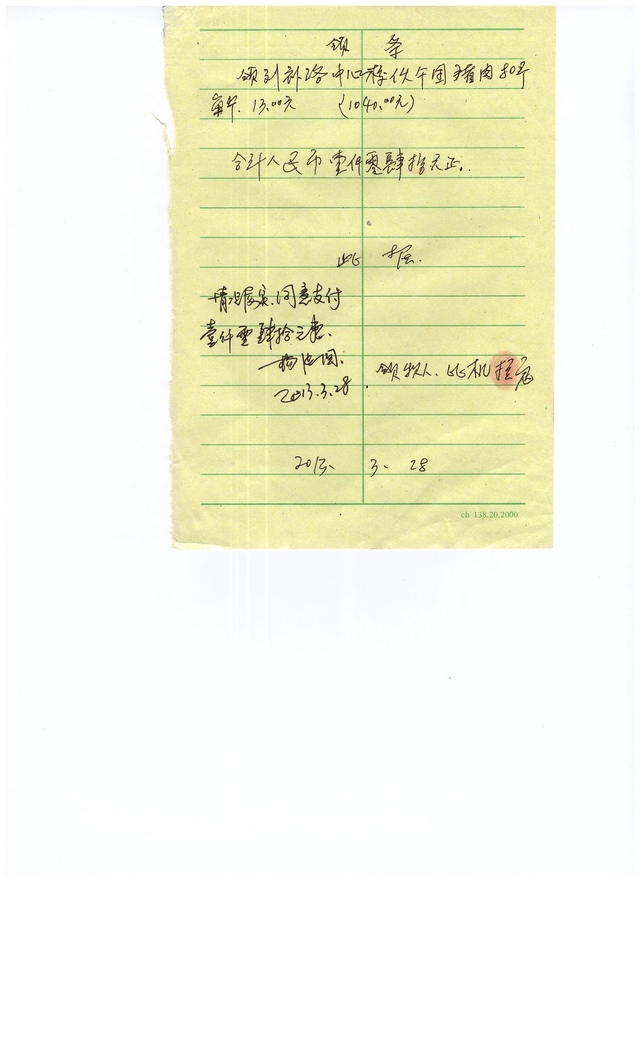 领 条
领到补洛中心校伙午团猪肉80斤
每斤.13.00元 (1040.00元)
合计人民币壹仟零肆拾元正.
此 据.
情况属实.同意支付
壹仟零肆拾元整.
2013.3.28.
领款人.比机
2013. 3. 28
ch 138.20.2000